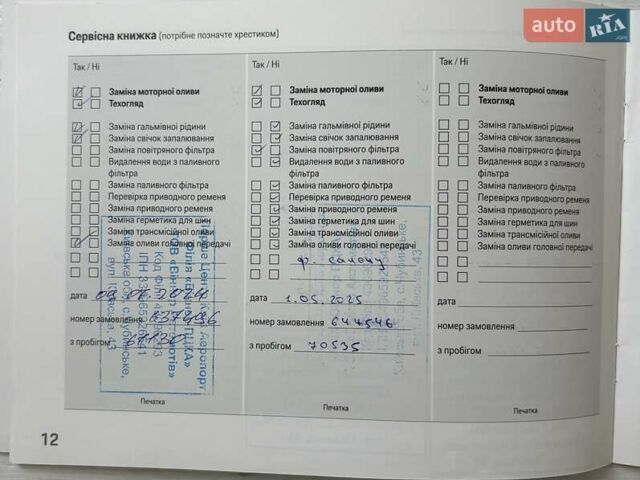 auto RIA.com
Сервісна книжка (потрібне позначте хрестиком)
Так / Ні
Заміна моторної оливи
Техогляд
Заміна гальмівної рідини
Заміна свічок запалювання
Заміна повітряного фільтра
Видалення води з паливного
фільтра
Заміна паливного фільтра
Перевірка приводного ременя
Заміна приводного ременя
Заміна герметика для шин
Заміна трансмісійної оливи
Заміна оливи головної передачі
дата
номер замовлення
з пробігом
Печатка
Так / Ні
Заміна моторної оливи
Техогляд
Заміна гальмівної рідини
Заміна свічок запалювання
Заміна повітряного фільтра
Видалення води з паливного
фільтра
Заміна паливного фільтра
Перевірка приводного ременя
Заміна приводного ременя
Заміна герметика для шин
Заміна трансмісійної оливи
Заміна оливи головної передачі
ф. салону
дата 1.05.2025
номер замовлення 644546
з пробігом 70535
Печатка
Так / Ні
Заміна моторної оливи
Техогляд
Заміна гальмівної рідини
Заміна свічок запалювання
Заміна повітряного фільтра
Видалення води з паливного
фільтра
Заміна паливного фільтра
Перевірка приводного ременя
Заміна приводного ременя
Заміна герметика для шин
Заміна трансмісійної оливи
Заміна оливи головної передачі
дата
номер замовлення
з пробігом
Печатка
12